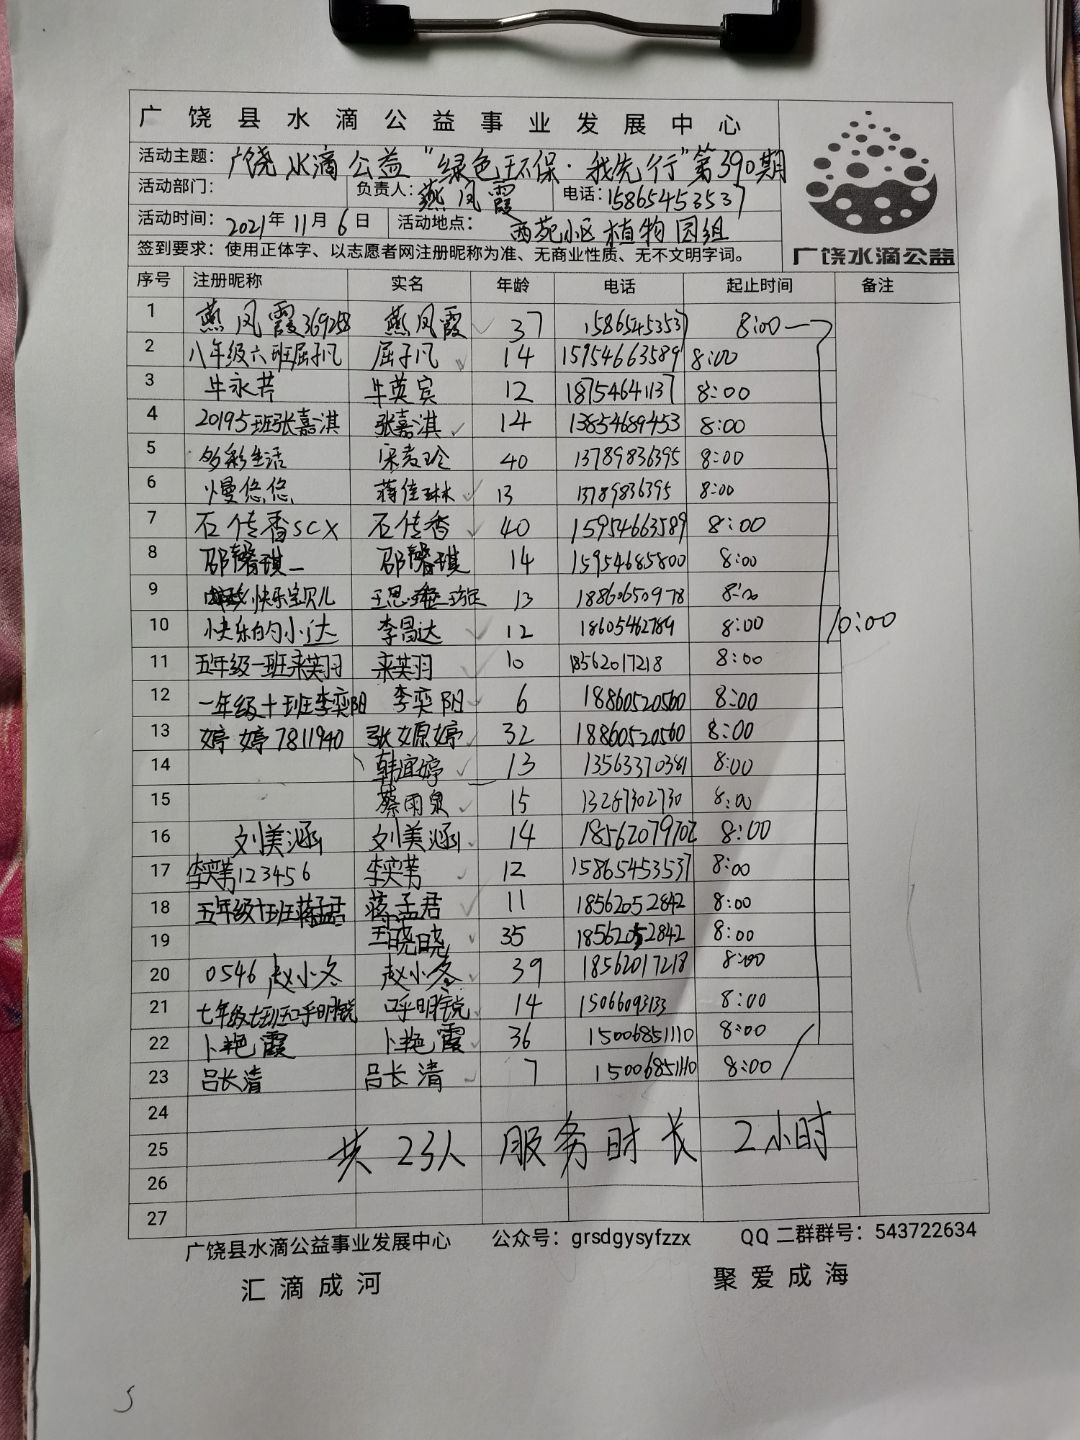 广饶县水滴公益事业发展中心
活动主题：广饶水滴公益“绿色环保·我先行”第390期
活动部门： 负责人：燕凤霞 电话：15865453537
活动时间：2021年11月6日 活动地点：西苑小区植物园组
签到要求：使用正体字、以志愿者网注册昵称为准、无商业性质、无不文明字词。
广饶水滴公益
序号 注册昵称 实名 年龄 电话 起止时间 备注
1 燕凤霞369258 燕凤霞 37 15865453537 8:00—
2 八年级六班屈子凡 屈子凡 14 15954663589 8:00
3 牛永芹 牛英宾 12 18754641137 8:00
4 20195班张嘉淇 张嘉淇 14 13854689453 8:00
5 多彩生活 宋志玲 40 13789836395 8:00
6 慢悠悠 蒋佳琳 13 13789836395 8:00
7 石传香SCX 石传香 40 15954663589 8:00
8 邵馨琪 邵馨琪 14 15954685800 8:00
9 快乐宝贝儿 王思 13 18860650978 8:00
10 快乐的小达 李昌达 12 18605462789 8:00
10:00
11 五年级一班来英羽 来英羽 10 18562017218 8:00
12 一年级十班李奕阳 李奕阳 6 18860520560 8:00
13 婷婷7811940 张嫄婷 32 18860520560 8:00
14 韩谊婷 13 13563370381 8:00
15 蔡雨泉 15 13287302730 8:00
16 刘美涵 刘美涵 14 18562079702 8:00
17 李奕菁123456 李奕菁 12 15865453537 8:00
18 五年级十班蒋孟君 蒋孟君 11 18562052842 8:00
19 王晓晓 35 18562052842 8:00
20 0546赵小冬 赵小冬 39 18562017218 8:00
21 七年级七班呼明锐 呼明锐 14 15066093133 8:00
22 卜艳霞 卜艳霞 36 15006851110 8:00
23 吕长清 吕长清 7 15006851110 8:00
24
25 共23人 服务时长 2小时
26
27
广饶县水滴公益事业发展中心 公众号：grsdgysyfzzx QQ二群群号：543722634
汇滴成河 聚爱成海
5